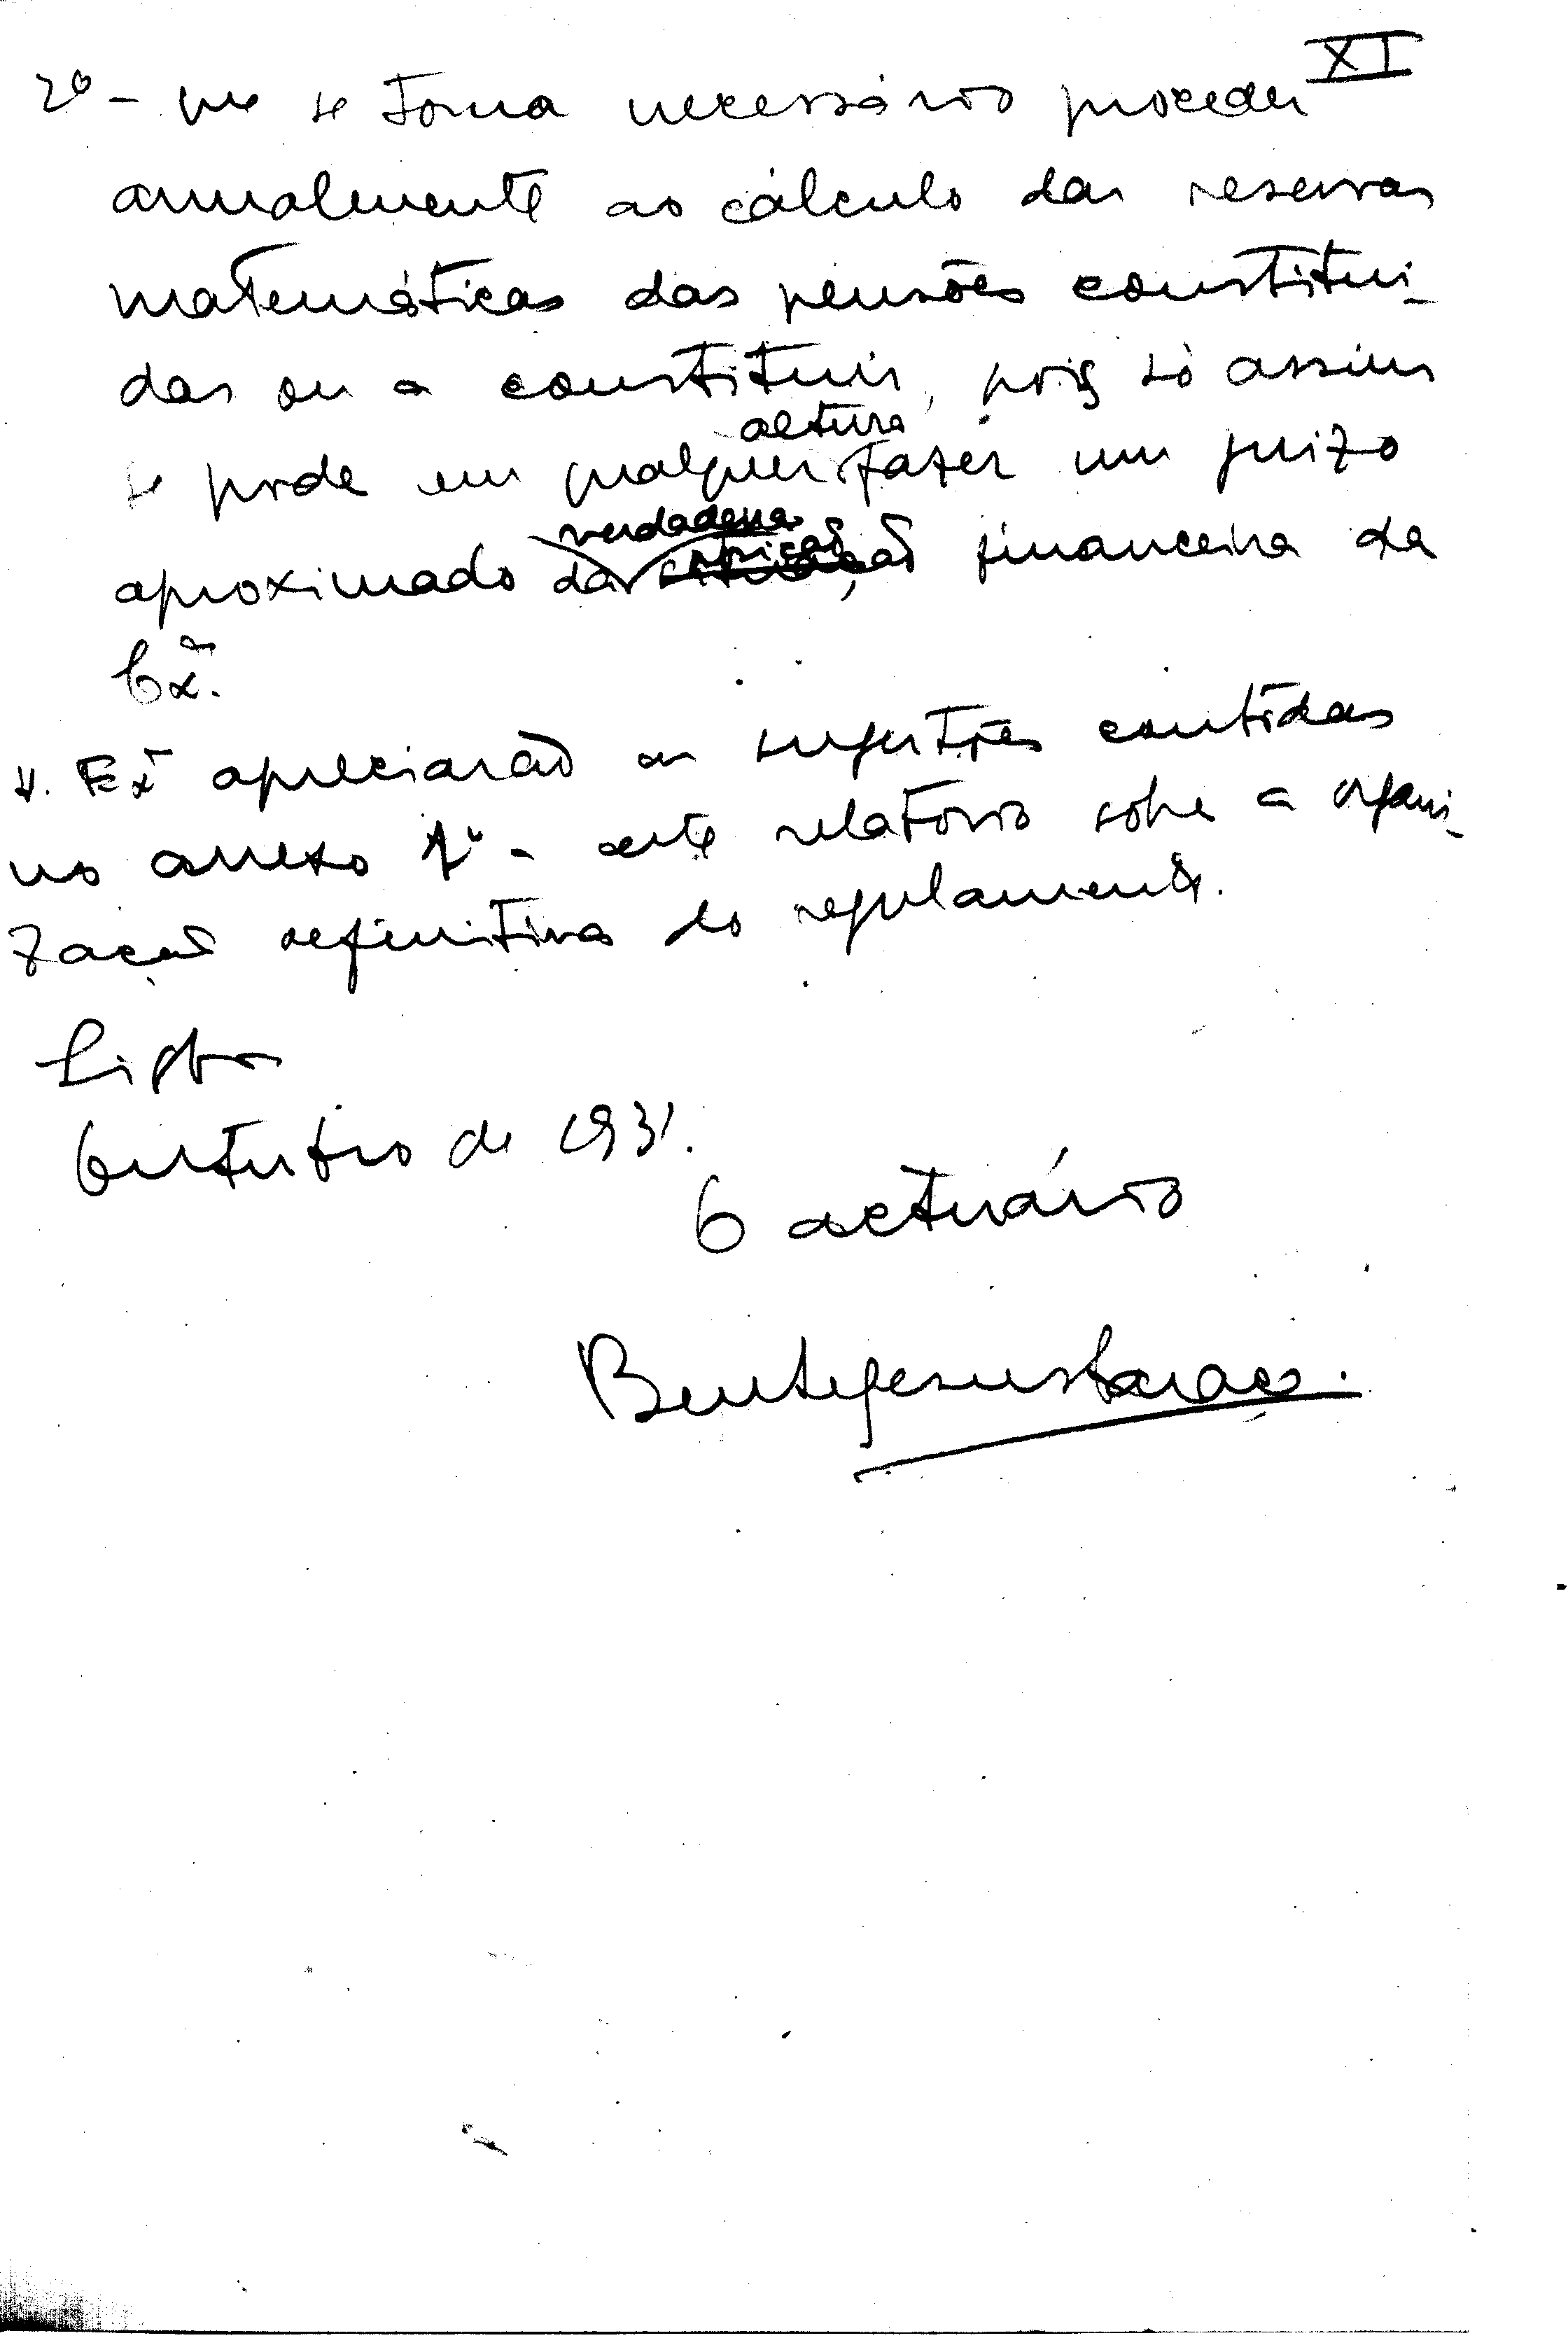 XI
2º - que se torna necessário proceder
anualmente ao cálculo das reservas
matemáticas das pensões constitui-
das ou a constituir, pois só assim
altura
se pode em qualquer fazer um juizo
verdadeira
posição
aproximado da situação financeira da
Cxª.
V. Exª apreciarão as sugestões contidas
no anexo 1º a este relatório sobre a organi-
zação definitiva do regulamento.
Lisboa
Outubro de 1931.
O actuário
Bento Jesus Caraça.